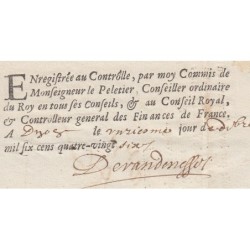 ENregistrée au Contrôlle, par moy Commis de
Monseigneur le Peletier, Conseiller ordinaire
du Roy en tous ses Conseils, & au Conseil Royal,
& Controlleur general des Finances de France.
A le unziesme jour de
mil six cens quatre-vingt six